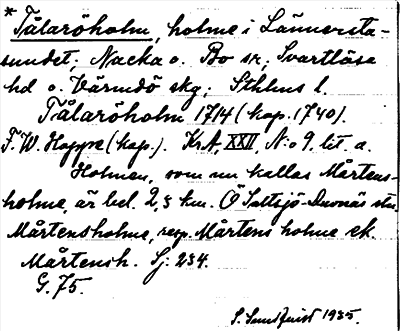 * Tålaröholm, holme i Lännersta-
sundet; Nacka o. Bo sn; Svartlösa
hd o. Värmdö skg; Sthlms l.
Tålaröholm 1714 (kop. 1740).
F. W. Hoppe (kop.). KrA, XXII, N:o 9. lit. a.
Holmen, som nu kallas Mårtens-
holme, är bel. 2,3 km. Ö Saltsjö-Duvnäs stn.
Mårtensholme, resp. Mårtens holme ek.
Mårtensh. Sj: 234.
G. 75.
S. Sundquist 1935.